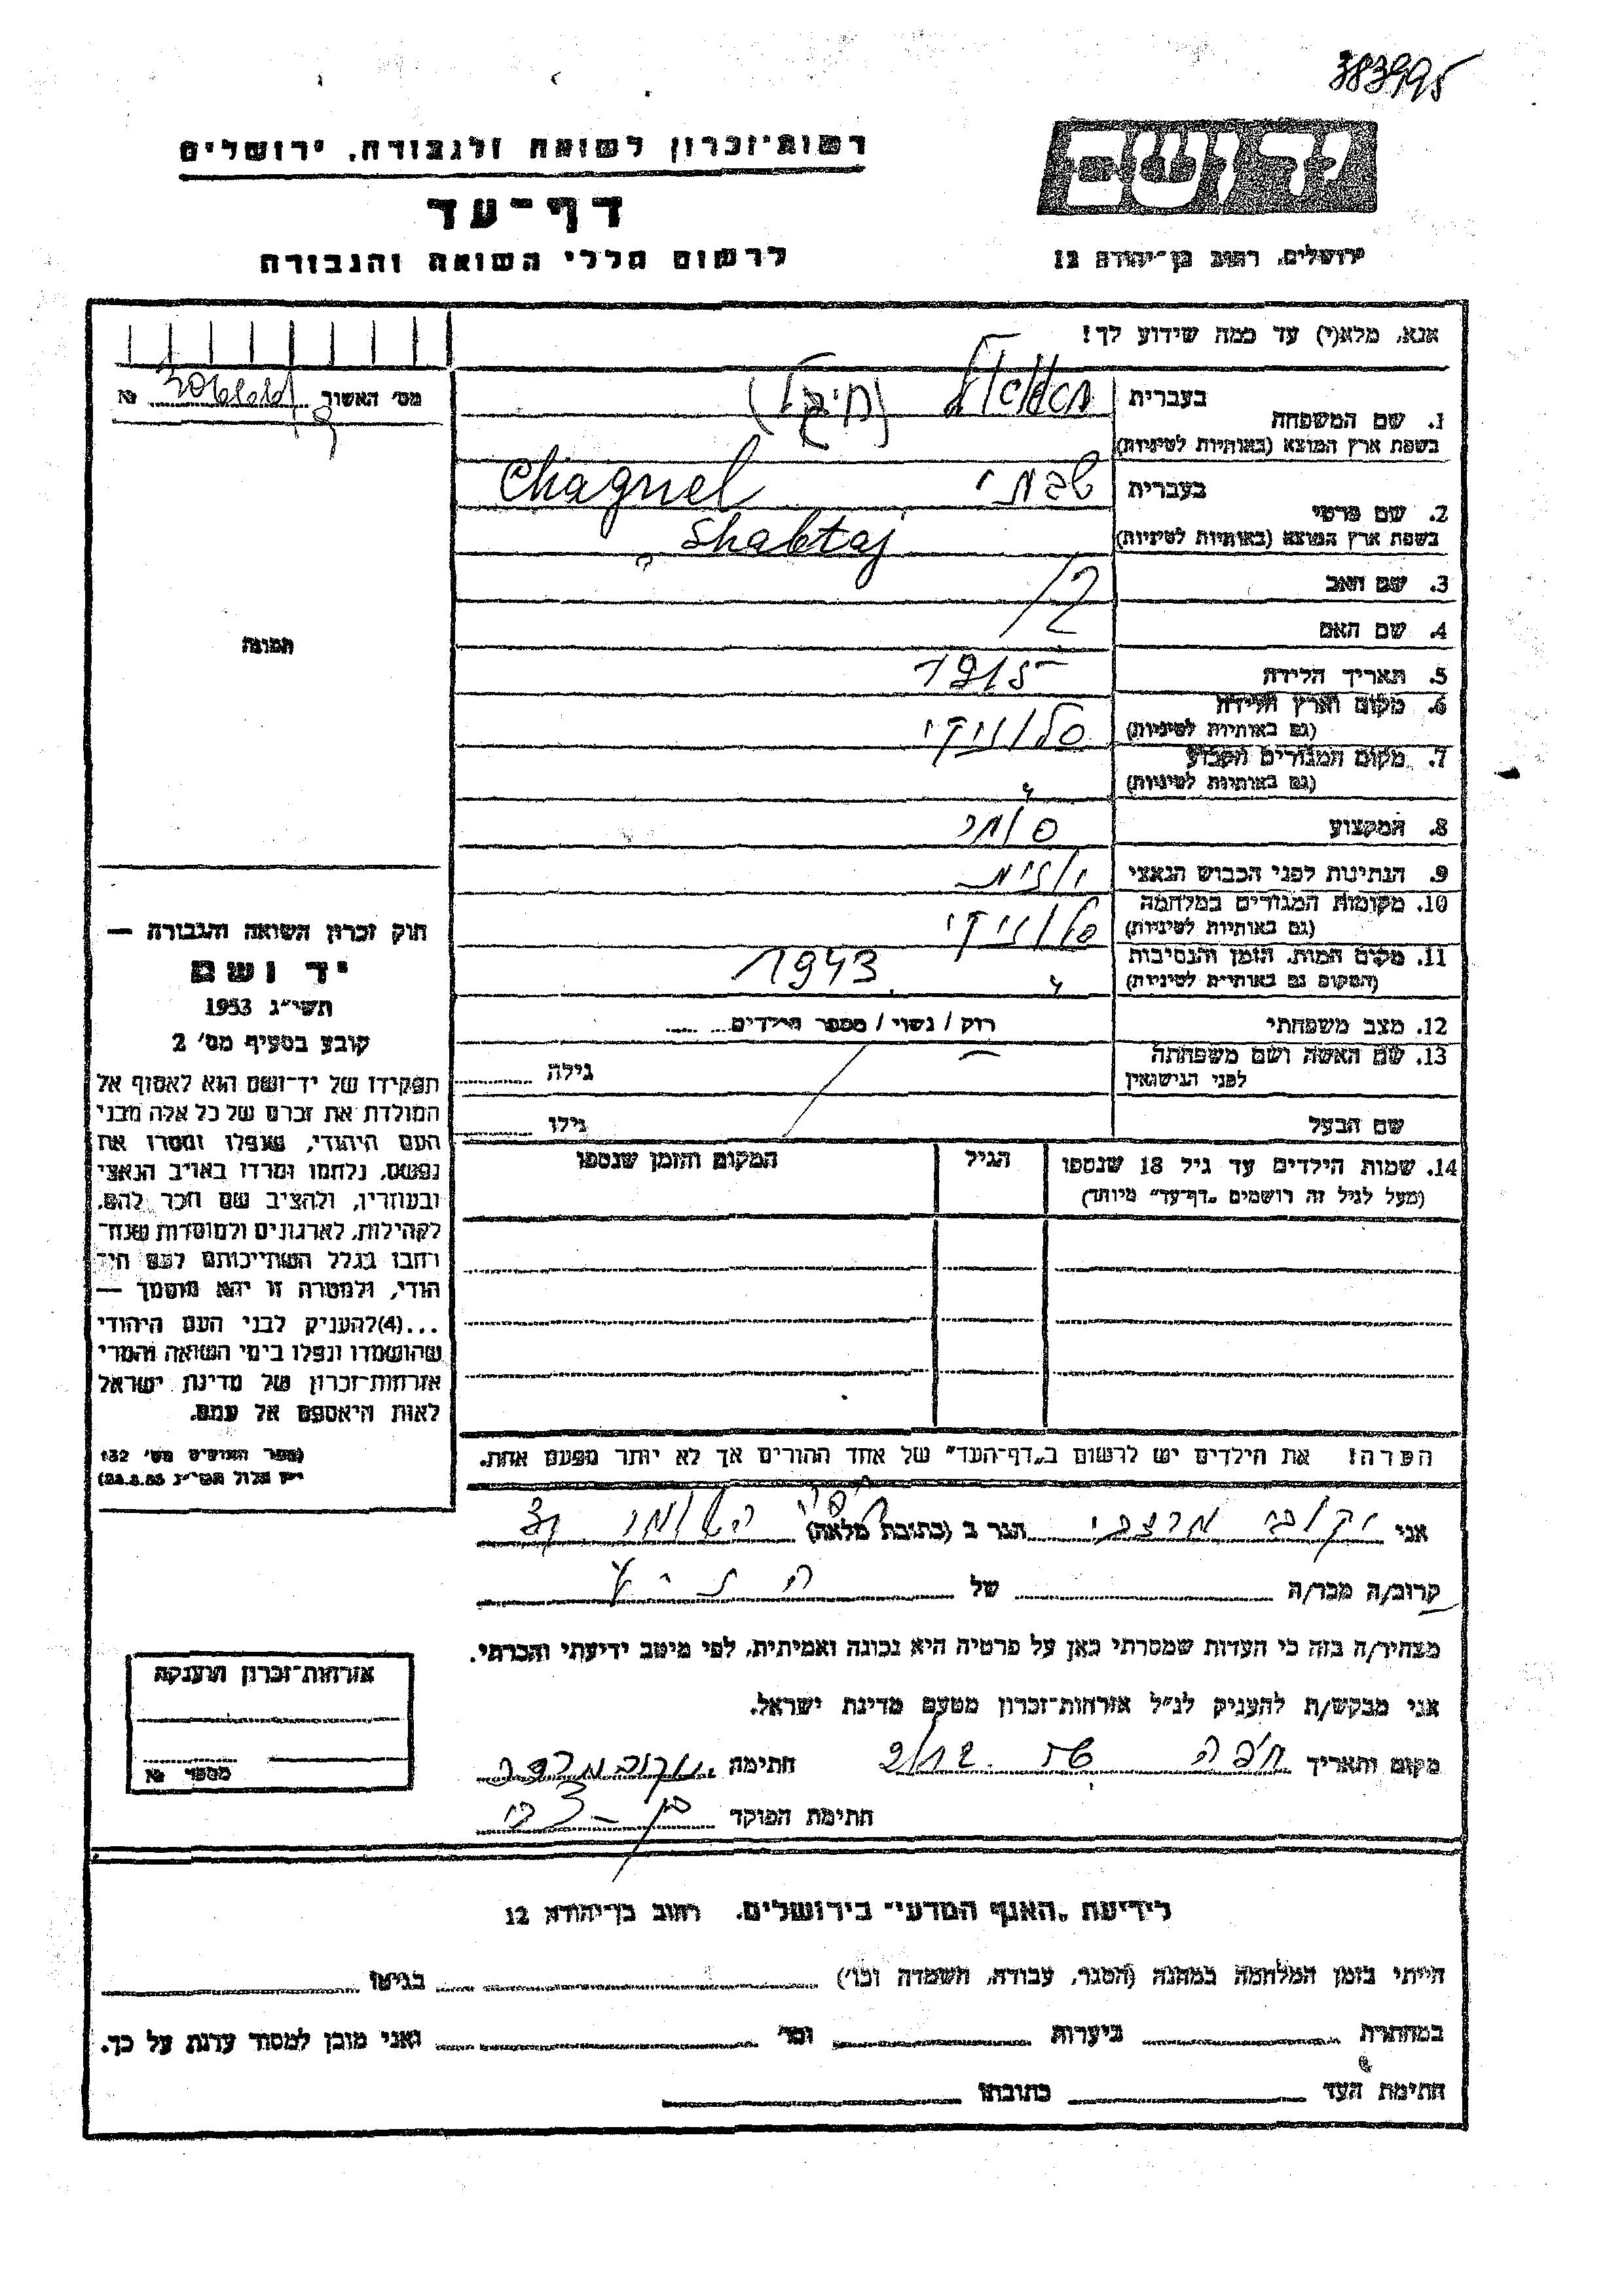 383995
יד ושם
רשות־זכרון לשואה ולגבורה, ירושלים
דף־עד
לרשום חללי השואה והגבורה
ירושלים, רחוב בן־יהודה 12
אנא, מלא(י) עד כמה שידוע לך!
מס׳ האשור № 
1. שם המשפחה
בעברית
בשפת ארץ המוצא (באותיות לטיניות)
Chaguel
2. שם פרטי
בעברית שבתי
בשפת ארץ המוצא (באותיות לטיניות)
Shabtaj
3. שם האב
4. שם האם
5. תאריך הלידה 1915
6. מקום וארץ הלידה סלוניקי
(גם באותיות לטיניות)
7. מקום המגורים הקבוע "
(גם באותיות לטיניות)
8. המקצוע סוחר
9. הנתינות לפני הכבוש הנאצי יונית
10. מקומות המגורים במלחמה סלוניקי
(גם באותיות לטיניות)
11. מקום המות, הזמן והנסיבות " 1943
(המקום גם באותיות לטיניות)
12. מצב משפחתי רוק / נשוי / מספר הילדים
13. שם האשה ושם משפחתה
לפני הנישואין
גילה
שם הבעל
גילו
14. שמות הילדים עד גיל 18 שנספו
(מעל לגיל זה רושמים „דף־עד״ מיוחד)
הגיל
המקום והזמן שנספו
תמונה
חוק זכרון השואה והגבורה —
יד ושם
תשי״ג 1953
קובע בסעיף מס׳ 2
תפקידו של יד־ושם הוא לאסוף אל
המולדת את זכרם של כל אלה מבני
העם היהודי, שנפלו ומסרו את
נפשם, נלחמו ומרדו באויב הנאצי
ובעוזריו, ולהציב שם וזכר להם,
לקהילות, לארגונים ולמוסדות שנח־
רחבו בגלל השתייכותם לעם היה־
הודי, ולמטרה זו יהא מוסמך —
...(4)להעניק לבני העם היהודי
שהושמדו ונפלו בימי השואה והמרי
אזרחות־זכרון של מדינת ישראל
לאות היאספם אל עמם.
(ספר החוקים מס׳ 132
הערה! את הילדים יש לרשום ב„דף־העד״ של אחד ההורים אך לא יותר מפעם אחת.
אני יעקב מרצבי הגר ב (כתובת מלאה) חיפה השומר
קרוב/ה מכר/ה של
מצהיר/ה בזה כי העדות שמסרתי כאן על פרטיה היא נכונה ואמיתית, לפי מיטב ידיעתי והכרתי.
אני מבקש/ת להעניק לנ״ל אזרחות־זכרון מטעם מדינת ישראל.
מקום ותאריך חיפה חתימה
חתימת הפוקד
אזרחות־זכרון הוענקה
מספר №
לידיעת „האגף המדעי״ בירושלים, רחוב בן־יהודה 12
הייתי בזמן המלחמה במחנה (הסגר, עבודה, השמדה וכו׳) בגיטו
במחתרת ביערות וכו׳ ואני מוכן למסור עדות על כך.
חתימת העד כתובתו